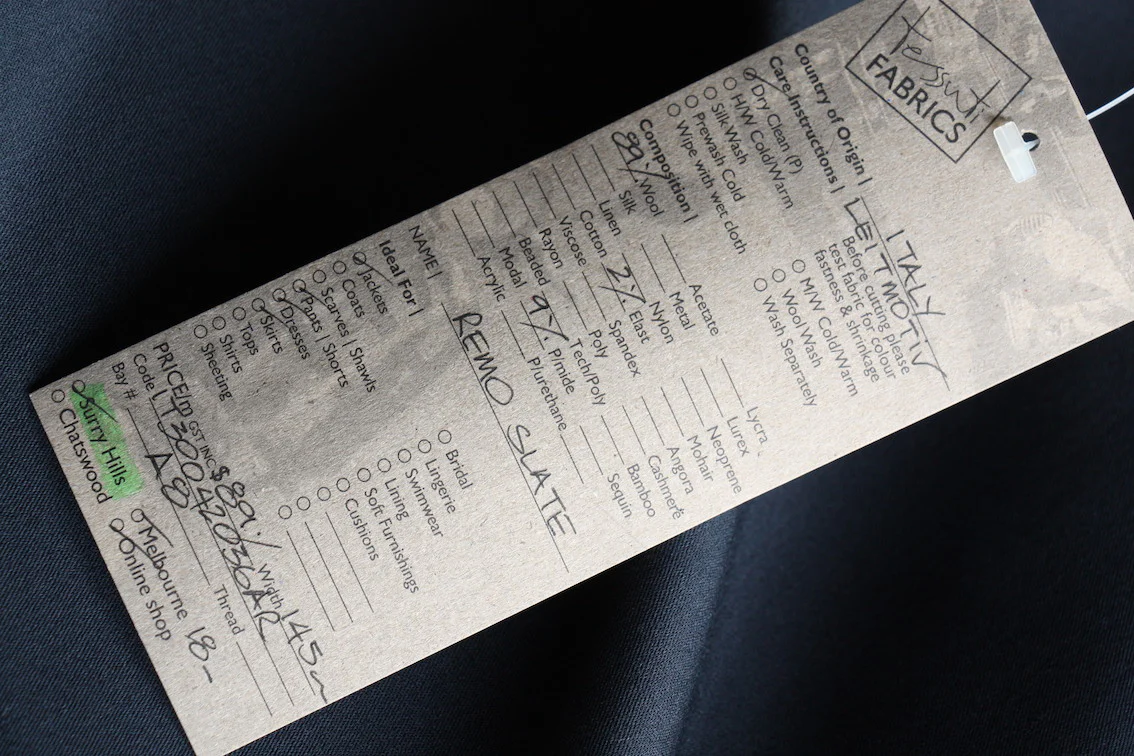 tessuti
FABRICS
Country of Origin | ITALY
Care Instructions | LEITMOTIV
Dry Clean (P)
H/W Cold/Warm
Silk Wash
Prewash Cold
Wipe with wet cloth
Before cutting please
test fabric for colour
fastness & shrinkage
M/W Cold/Warm
Wool Wash
Wash Separately
Composition |
89% Wool
Silk
Linen
Cotton
Viscose
Rayon
Beaded
Modal
Acrylic
Acetate
Metal
Nylon
2% Elast
Spandex
Poly
Tech/Poly
9% P/mide
P/urethane
Lycra
Lurex
Neoprene
Mohair
Angora
Cashmere
Bamboo
Sequin
NAME | REMO SLATE
Ideal For |
Jackets
Coats
Scarves | Shawls
Pants | Shorts
Dresses
Skirts
Tops
Shirts
Sheeting
Bridal
Lingerie
Swimwear
Lining
Soft Furnishings
Cushions
PRICE/m GST INC $89./ Width 145
Code ITZ0042036AR
Bay # A8 Thread
Surry Hills
Chatswood
Melbourne 18-
Online shop